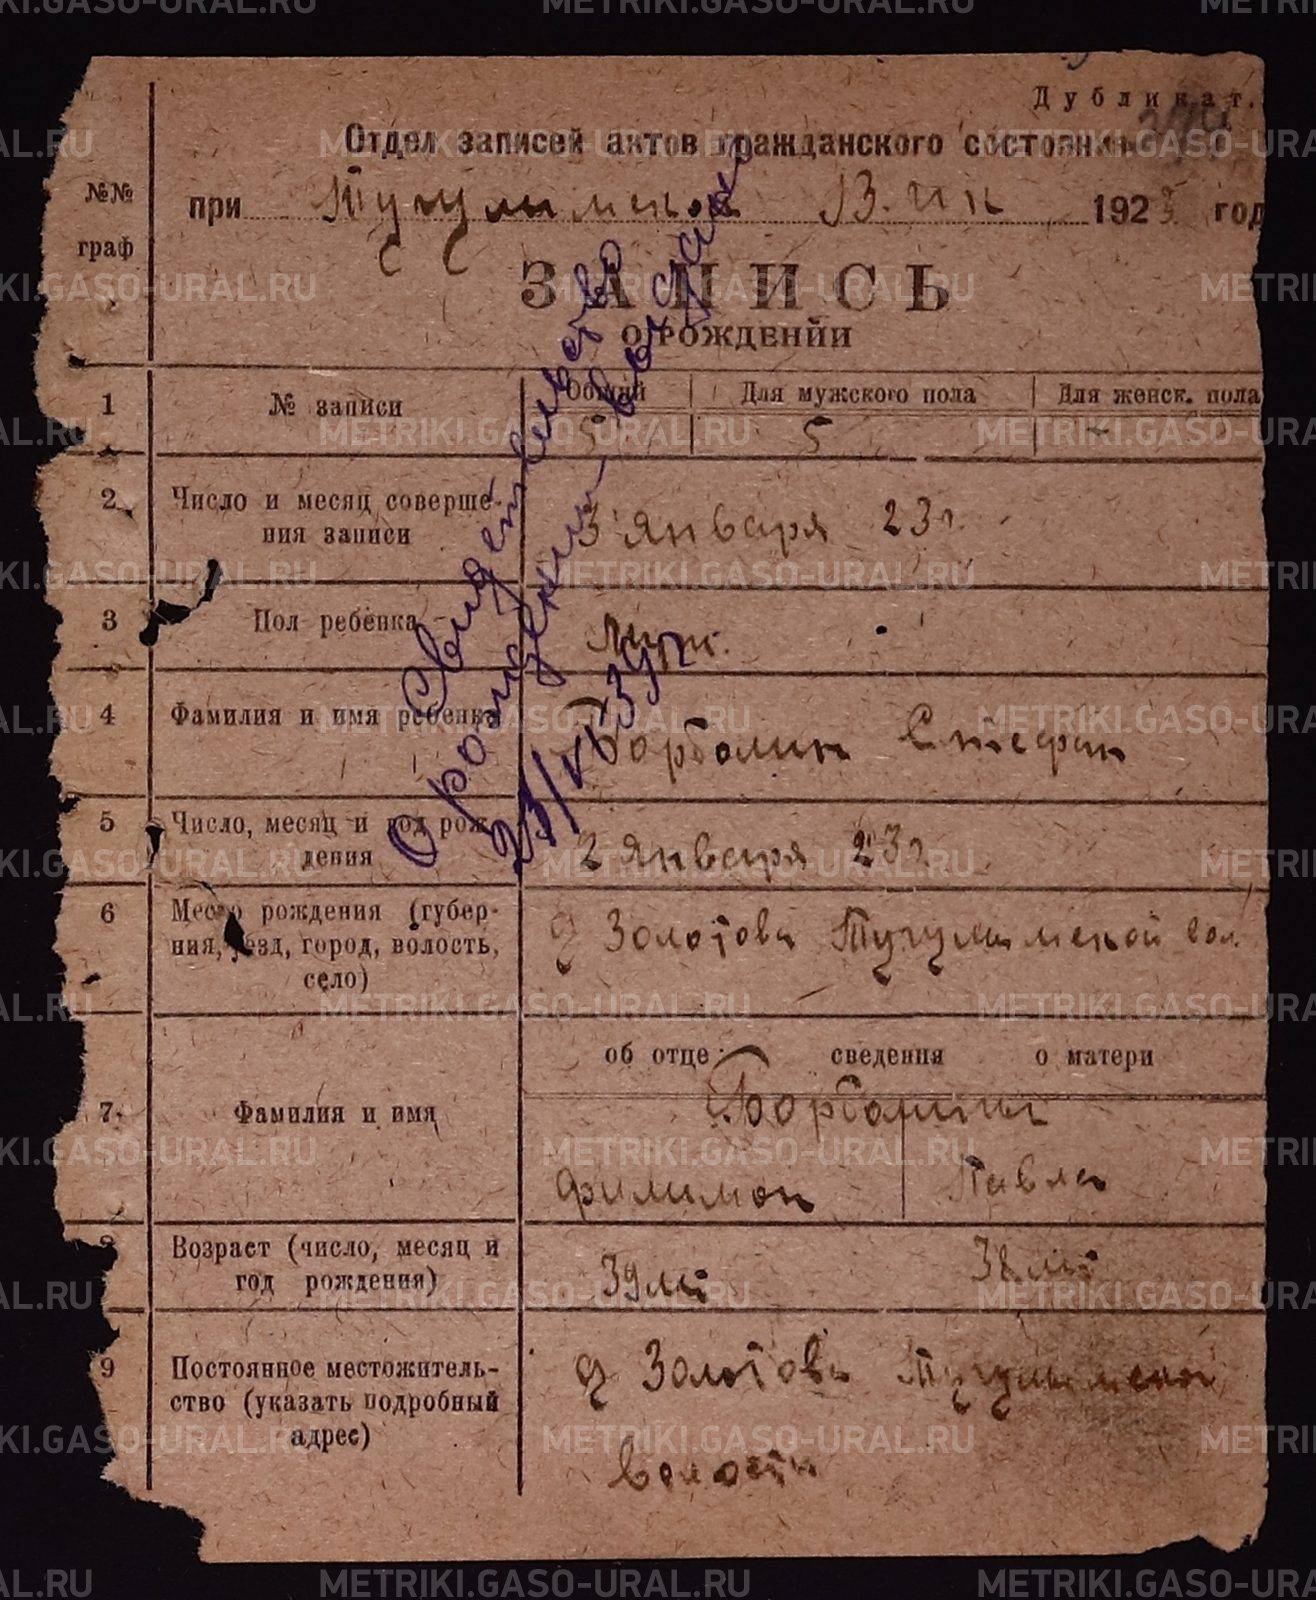 Дубликат.
Отдел записей актов гражданского состояния
№№ граф
при Тугулымском В. ИК 1923 год
ЗАПИСЬ
О РОЖДЕНИИ
Общий Для мужского пола Для женск. пола
1 № записи 5 5 -
2 Число и месяц соверше-
ния записи 3 января 23 г.
3 Пол ребенка Муж.
4 Фамилия и имя ребенка Борболин Стефан
5 Число, месяц и год рож-
дения 2 января 23 г.
6 Место рождения (губер-
ния, уезд, город, волость,
село) д Золотова Тугулымской вол.
об отце сведения о матери
7 Фамилия и имя Борболины
Филимон Павла
8 Возраст (число, месяц и
год рождения) 39 лет 38 лет
9 Постоянное местожитель-
ство (указать подробный
адрес) д Золотова Тугулымской
волости
Свидетельство
о рождении выдано
METRIKI.GASO-URAL.RU